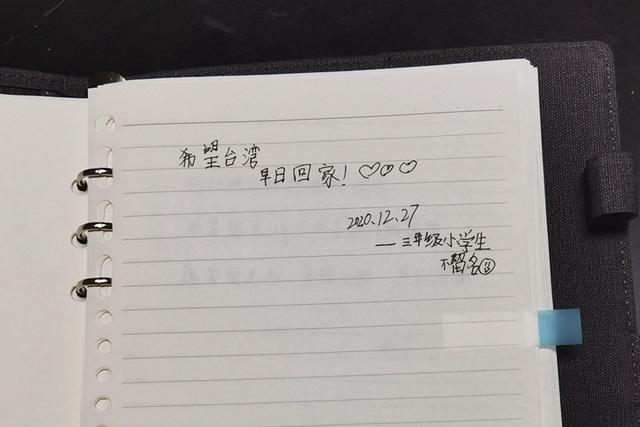 希望台湾
早日回家！♡♡♡
2020.12.27
——三年级小学生
不留名